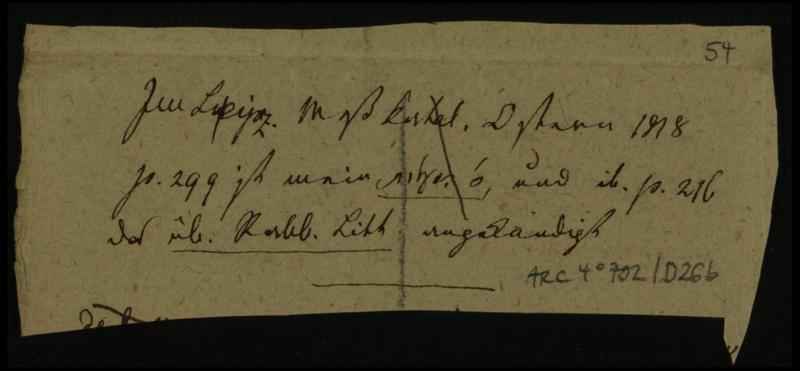 54
Im Leipz. Meß Katal. Ostern 1818
p. 299 ist mein und ib. p. 216
das üb. Rabb. Litt. angekündigt
ARC 4° 702/D26b